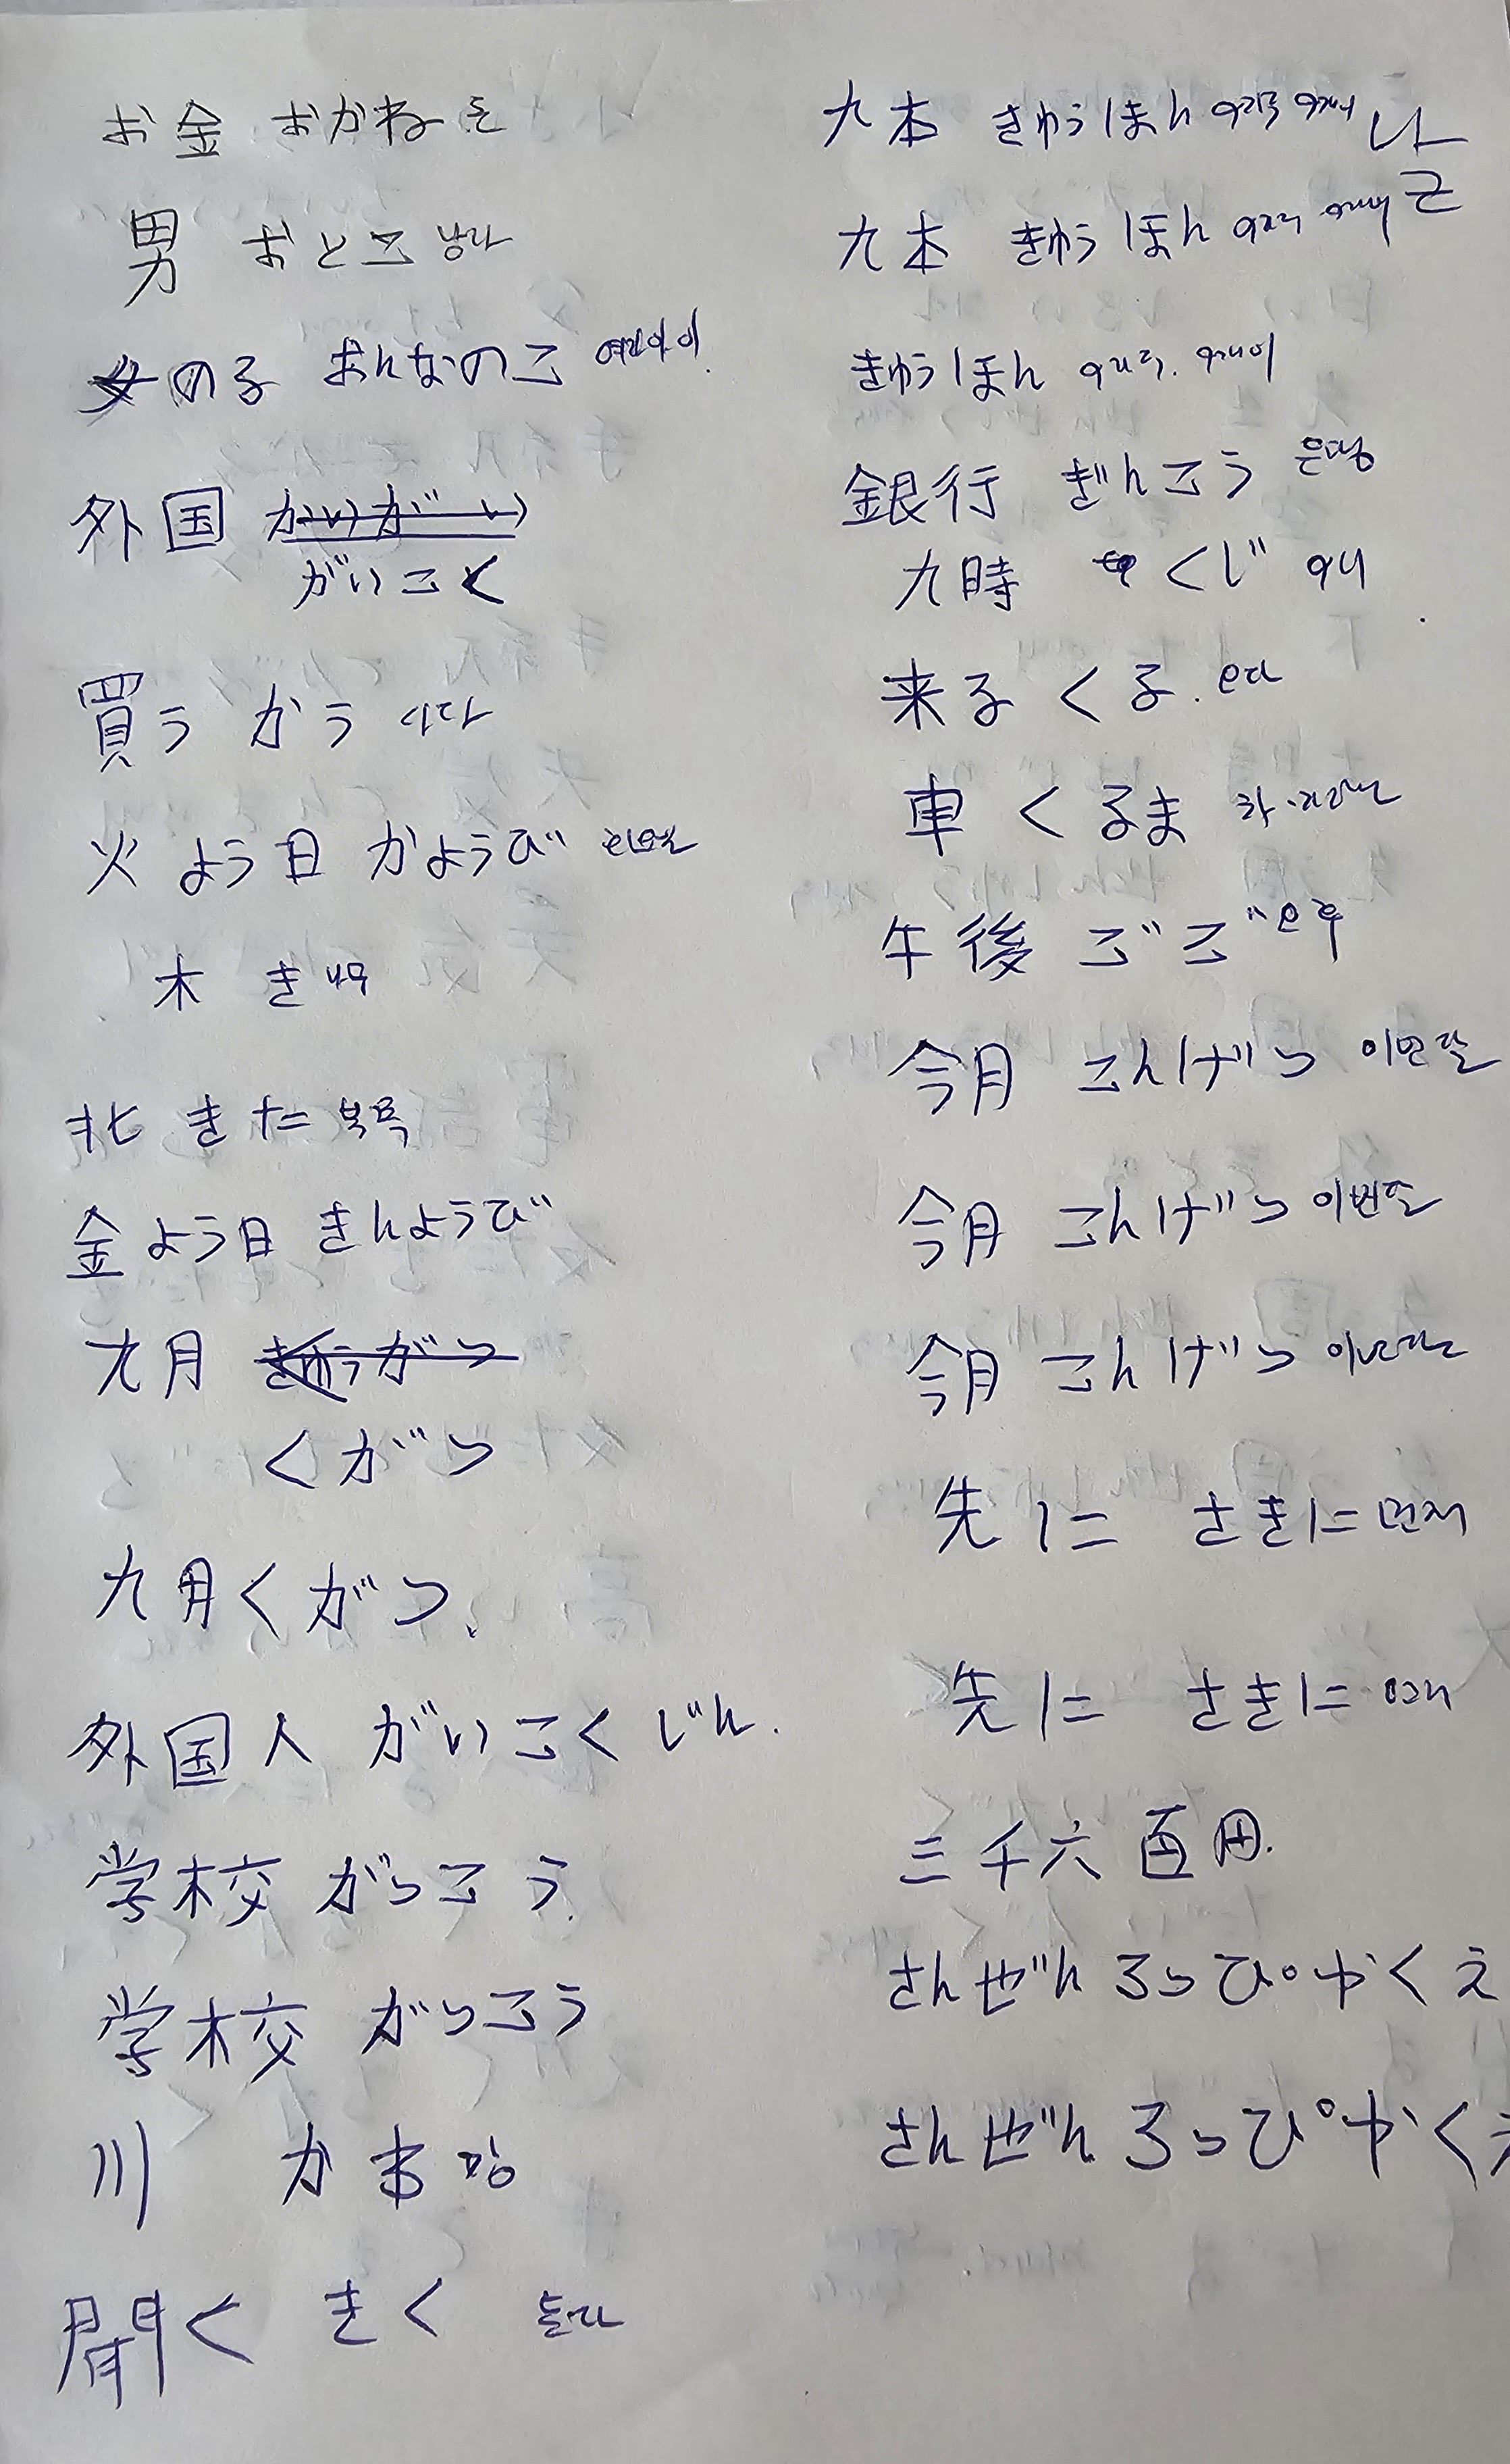 お金 おかね 돈
男 おとこ 남자
女の子 おんなのこ 여자아이
外国 かいがい
がいこく
買う かう 사다
火よう日 かようび 화요일
木 き 나무
北 きた 북쪽
金よう日 きんようび
九月 きゅうがつ
くがつ
九月 くがつ.
外国人 がいこくじん.
学校 がっこう.
学校 がっこう
川 かわ 강
聞く きく 듣다
九本 きゅうほん 아홉
九本 きゅうほん
きゅうほん
銀行 ぎんこう 은행
九時 くじ 9시
来る くる. 오다
車 くるま 차.
午後 ごご 오후
今月 こんげつ 이번달
今月 こんげつ 이번달
今月 こんげつ 이번달
先に さきに 먼저
先に さきに 먼저
三千六百円.
さんぜんろっぴゃくえ
さんぜんろっぴゃくえ